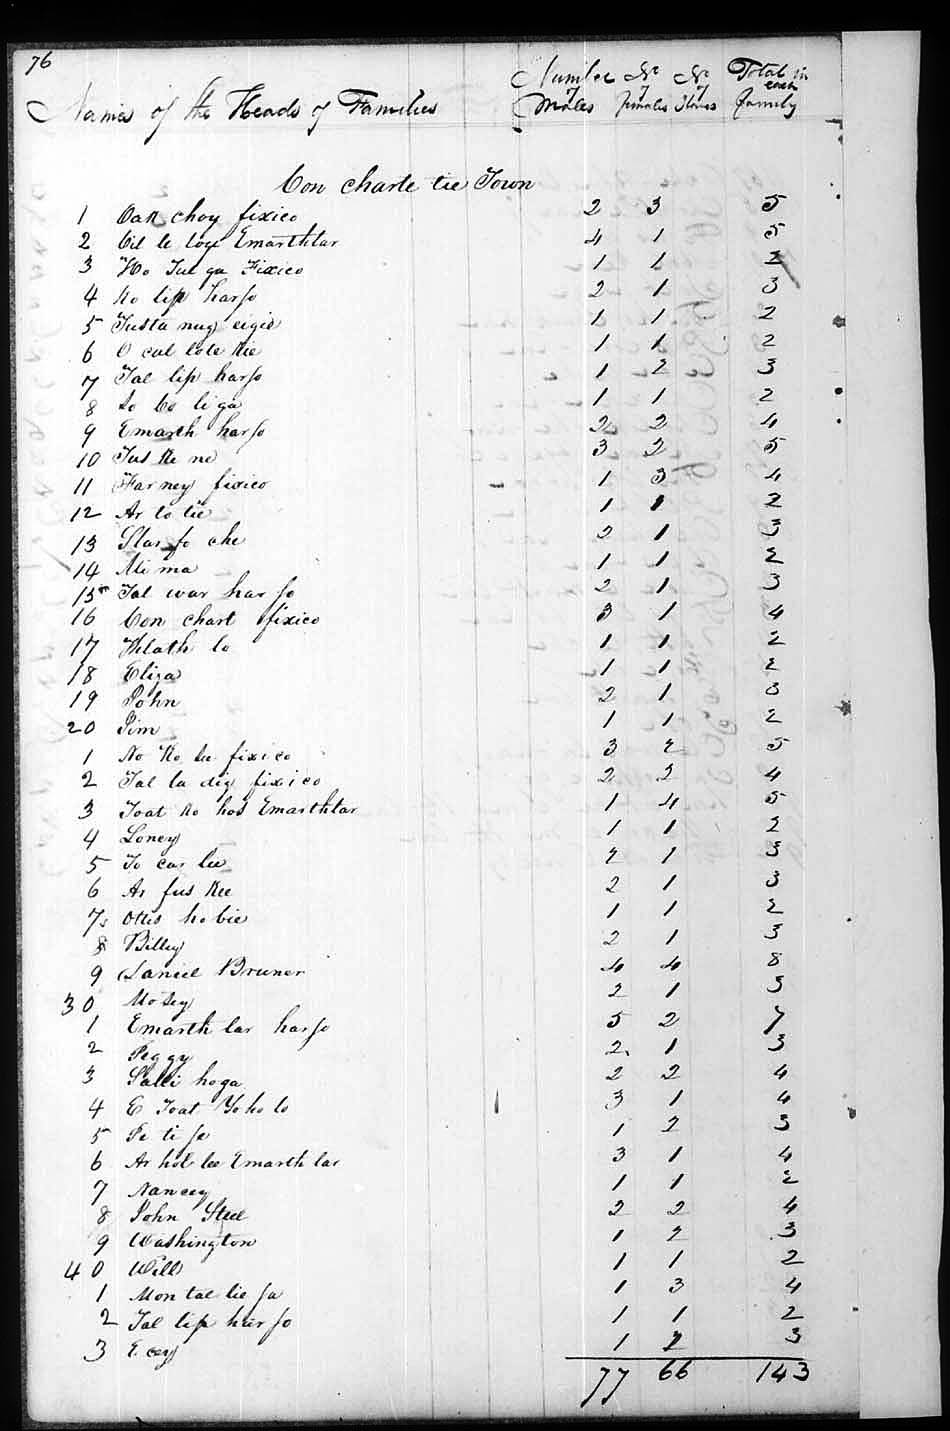 76
Names of the Heads of Families Number of Males No of females No of Slaves Total in each family
Con charte tie Town
1 Oak choy fixico 2 3 5
2 Cil le loye Emarthlar 4 1 5
3 Ho Tul ga Fixico 1 1 2
4 Ko lip harjo 2 1 3
5 Tusta nug eigie 1 1 2
6 O cul lole Kie 1 1 2
7 Tal lip harjo 1 2 3
8 So Co li ga 1 1 2
9 Emarth harjo 2 2 4
10 Tus Ke ne 3 2 5
11 Farney fixico 1 3 4
12 Ar lo tie 1 1 2
13 Star fo che 2 1 3
14 Mi ma 1 1 2
15 Tal war har jo 2 1 3
16 Con chart fixico 3 1 4
17 Thlath lo 1 1 2
18 Eliza 1 1 2
19 John 2 1 3
20 Jim 1 1 2
1 No Ko se fixico 3 2 5
2 Tal la dig fixico 2 2 4
3 Toat Ko hos Emarthlar 1 4 5
4 Loney 1 1 2
5 To car lee 2 1 3
6 Ar fus Kee 2 1 3
7 Ottis ho bie 1 1 2
8 Billey 2 1 3
9 Daniel Bruner 4 4 8
30 Mosey 2 1 3
1 Emarth lar harjo 5 2 7
2 Peggy 2 1 3
3 Salli hoga 2 2 4
4 E Toat Yo ho lo 3 1 4
5 Pe ti ja 1 2 3
6 Ar hol lee Emarth lar 3 1 4
7 Nancey 1 1 2
8 John Steel 2 2 4
9 Washington 1 2 3
40 Will 1 1 2
1 Mon tal lie ja 1 3 4
2 Tal lip harjo 1 1 2
3 E cey 1 2 3
77 66 143